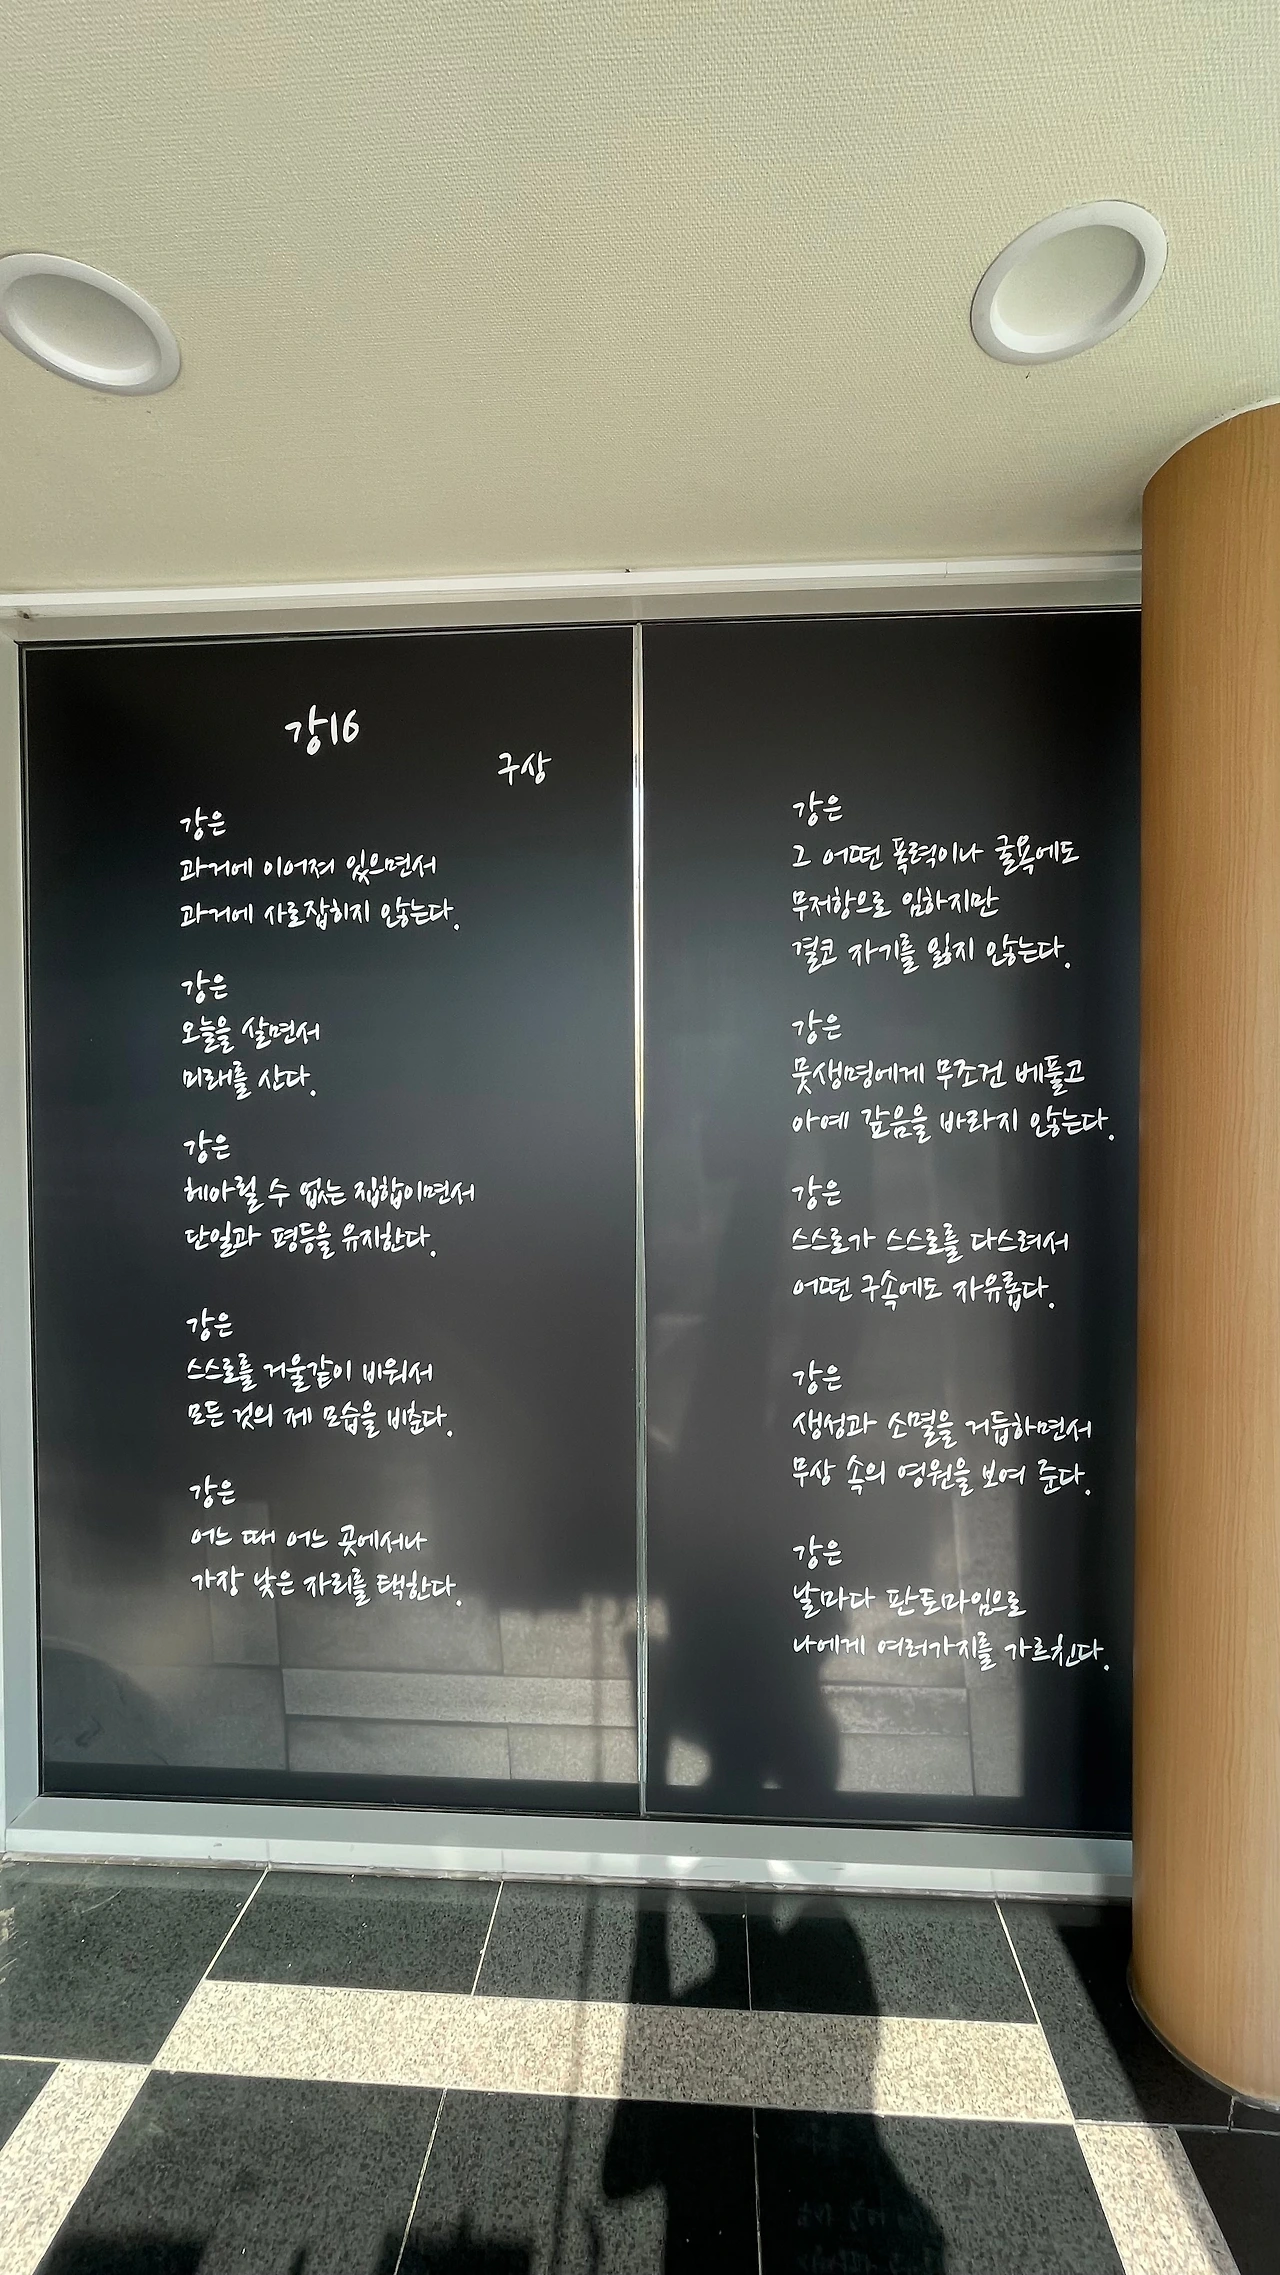 강16
구상
강은
과거에 이어져 있으면서
과거에 사로잡히지 않는다.
강은
오늘을 살면서
미래를 산다.
강은
헤아릴 수 없는 집합이면서
단일과 평등을 유지한다.
강은
스스로를 거울같이 비워서
모든 것의 제 모습을 비춘다.
강은
어느 때 어느 곳에서나
가장 낮은 자리를 택한다.
강은
그 어떤 폭력이나 굴욕에도
무저항으로 임하지만
결코 자기를 잃지 않는다.
강은
뭇생명에게 무조건 베풀고
아예 갚음을 바라지 않는다.
강은
스스로가 스스로를 다스려서
어떤 구속에도 자유롭다.
강은
생성과 소멸을 거듭하면서
무상 속의 영원을 보여 준다.
강은
날마다 판토마임으로
나에게 여러가지를 가르친다.